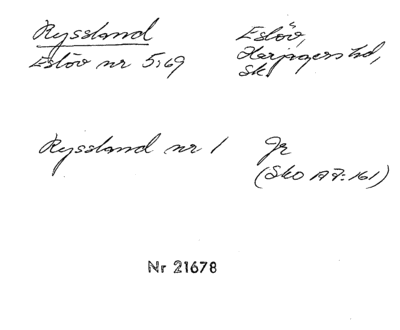 Ryssland
Eslöv nr 5:69
Eslöv,
Harjagers hd,
Sk
Ryssland nr 1 gr
(Sko A 7:161)
Nr 21678